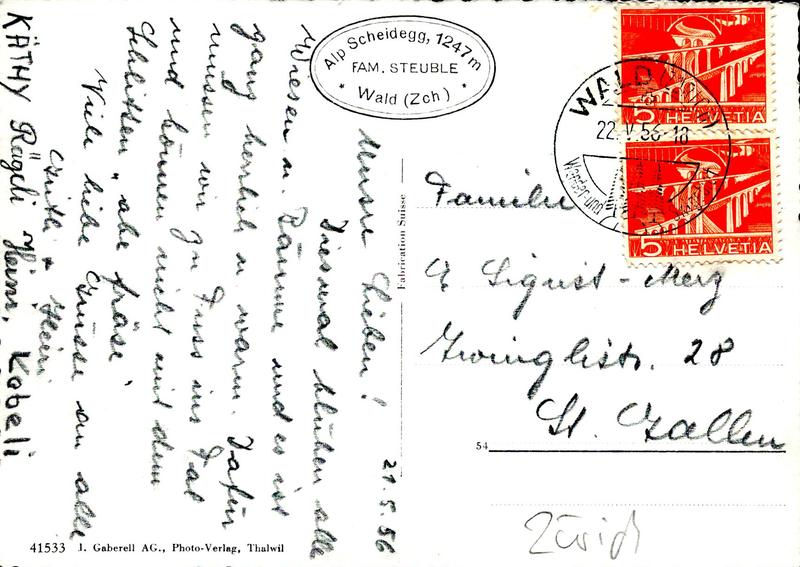 Alp Scheidegg, 1247 m
FAM. STEUBLE
* Wald (Zch) *
21.5.56
Unsere Lieben!
Diesmal blühen alle
Wiesen u. Bäume und es ist
ganz herrlich u warm. Dafür
müssen wir zu Fuss ins Tal
und können nicht mit dem
Schlitten "abe fräse".
Viele liebe Grüsse an alle
+ Heiri
KÄTHY Rägeli Heinr. Kobeli
Fabrication Suisse
5 HELVETIA
5 HELVETIA
WALD
22.V.56-18
Wander-und
Familie
A Sigrist-Merz
Zwinglistr. 28
St. Gallen
54
Zürich
41533 J. Gaberell AG., Photo-Verlag, Thalwil